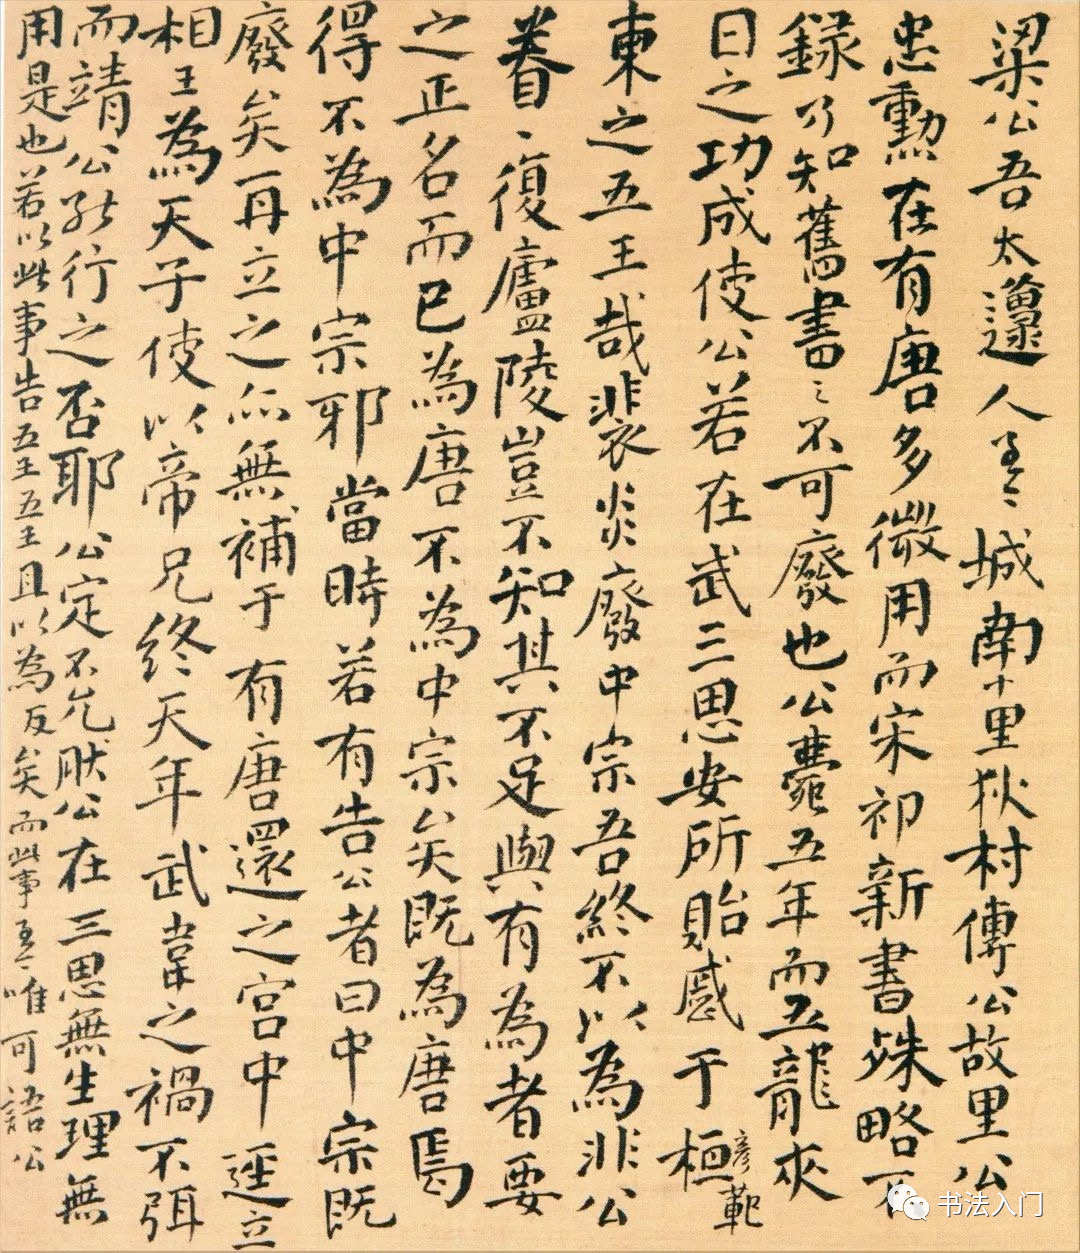 梁公吾太邍人至今城南十里狄村傳公故里公
忠勳在有唐多微用而宋祁新書殊略不
録乃知舊書之不可廢也公薨五年而五龍夾
日之功成使公若在武三思安所貽慼于桓彥範
柬之五王哉裴炎廢中宗吾終不以為非公
眷〻復廬陵豈不知其不足與有為者要
之正名而已為唐不為中宗矣既為唐焉
得不為中宗邪當時若有告公者曰中宗既
廢矣再立之亦無補于有唐還之宮中逕立
相王為天子使以帝兄終天年武韋之禍不弭
而靖公能行之否耶公定不允肰公在三思無生理無
用是也若以此事告五王五王且以為反矣而此事至今唯可語公
书法入门